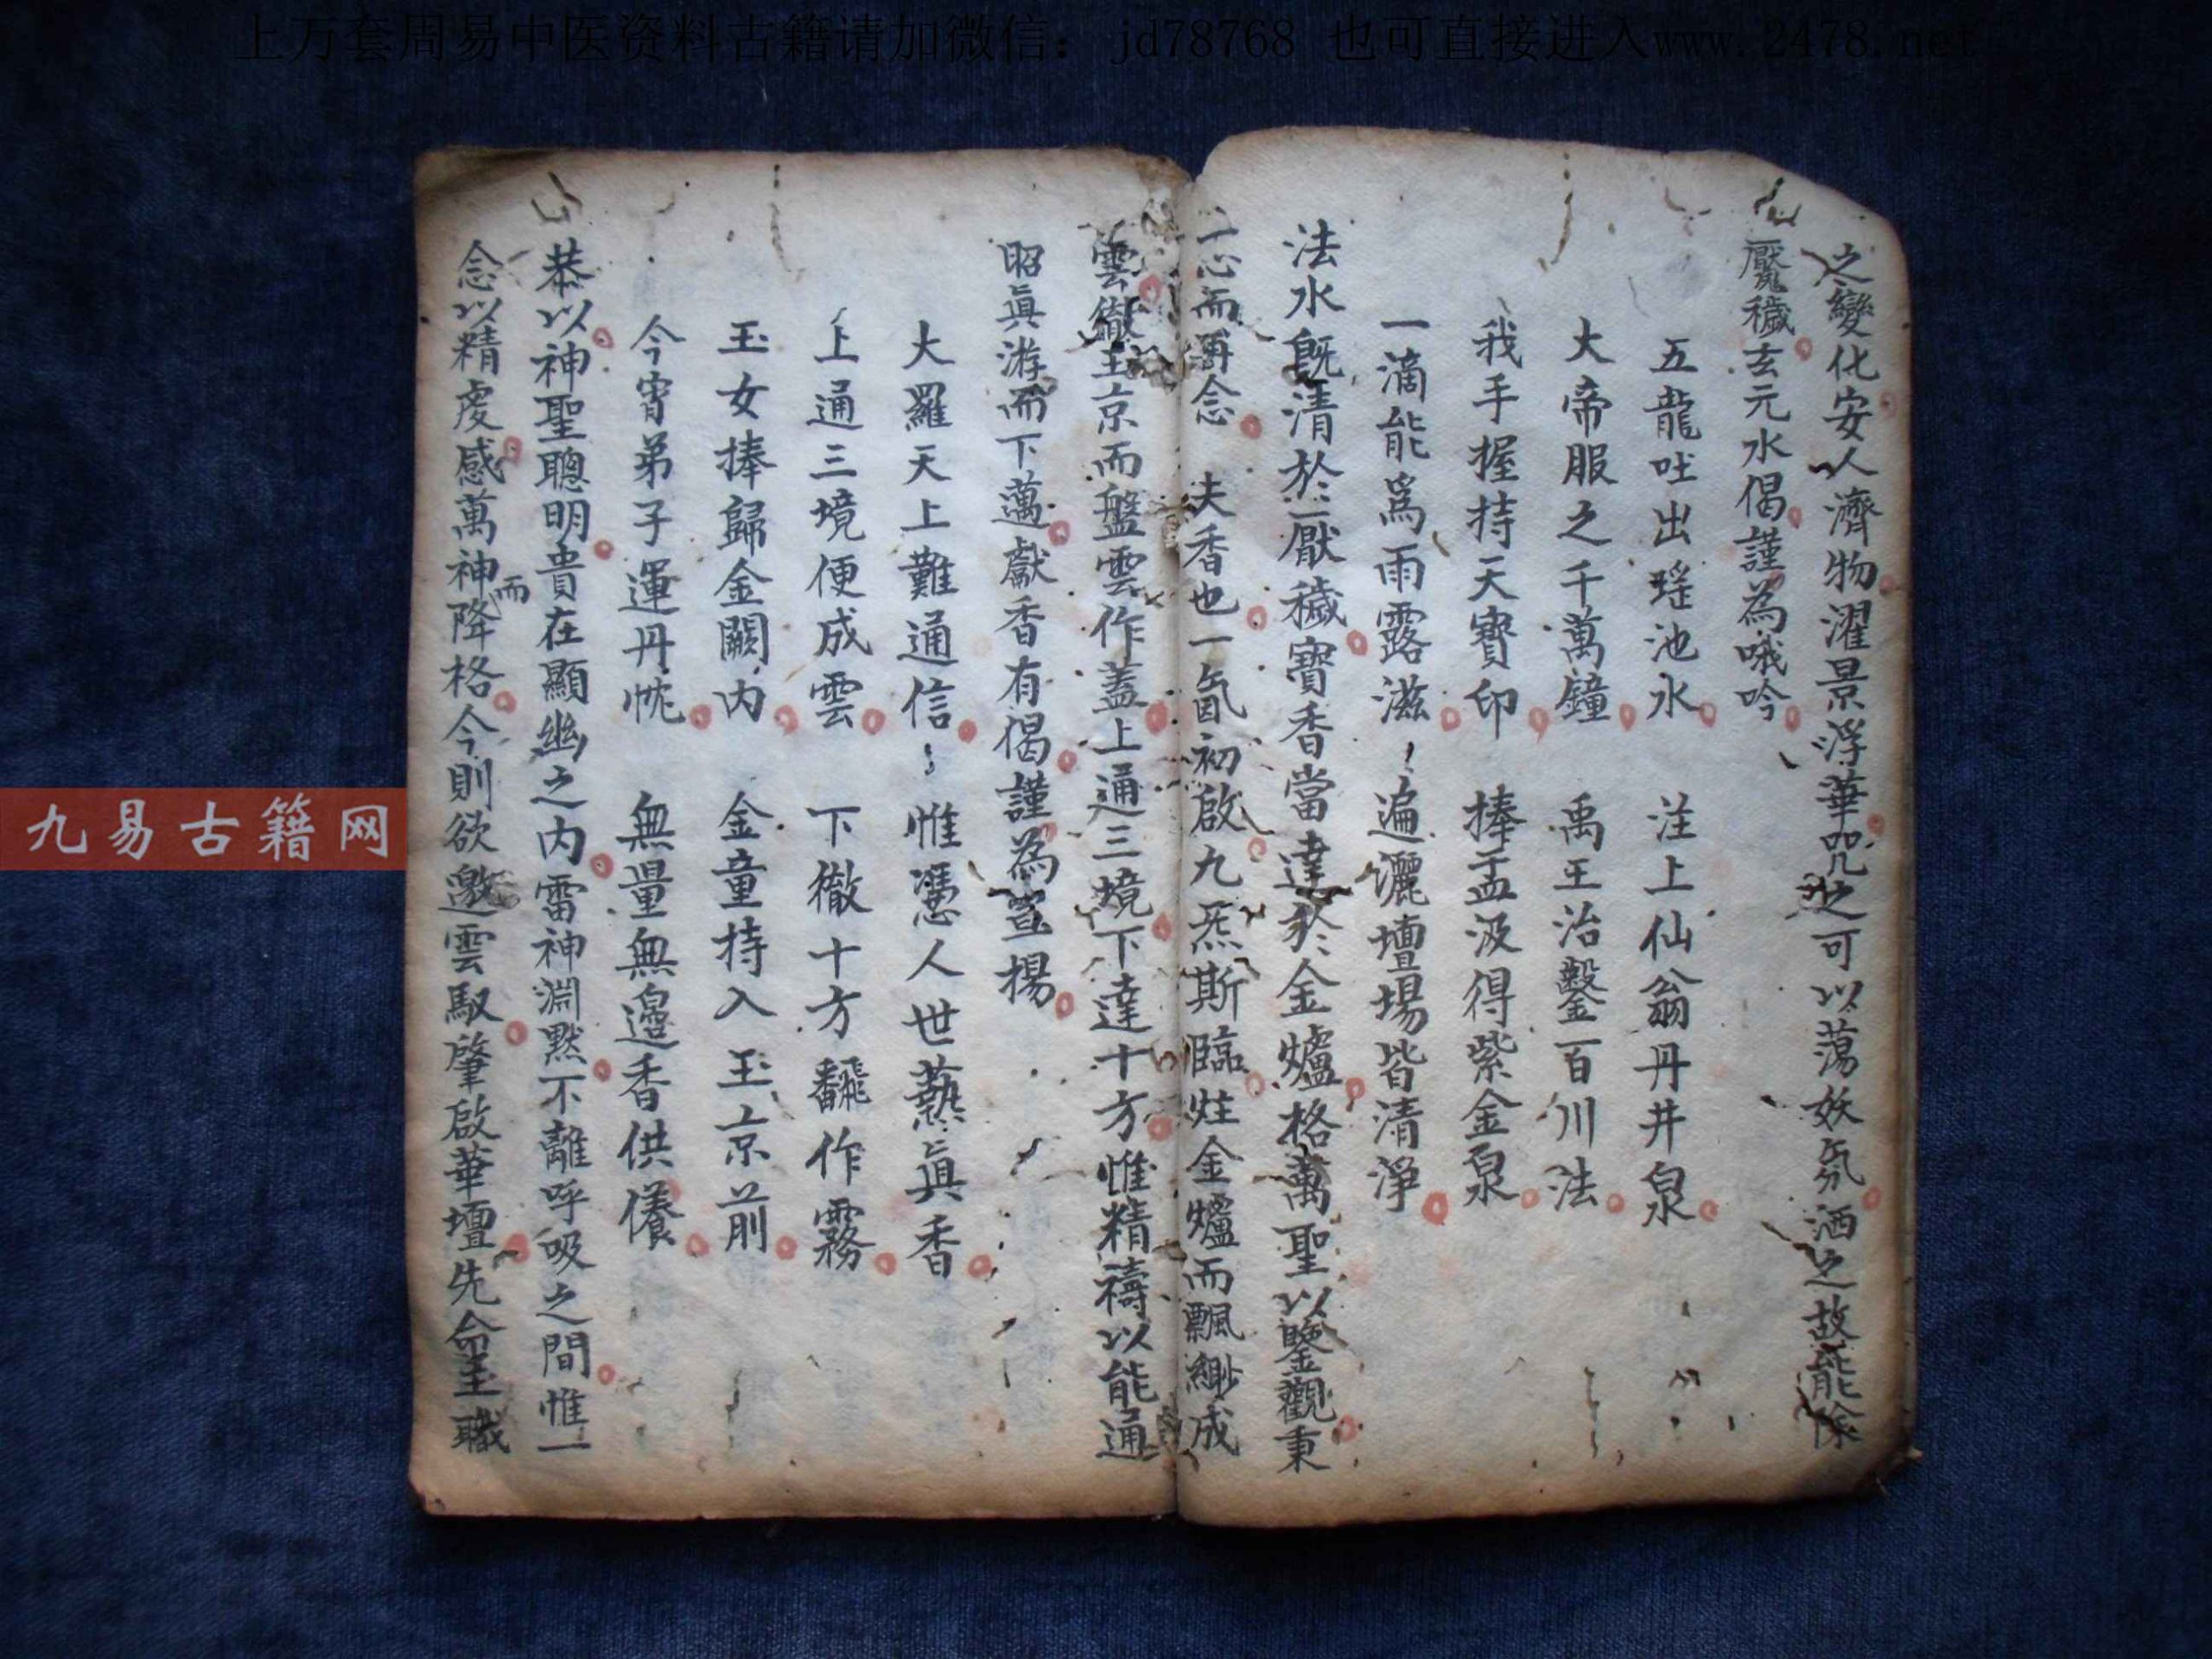 上万套周易中医资料古籍请加微信： jd78768 也可直接进入www.2478.net
九易古籍网
之變化安人濟物濯景浮華咒之可以蕩妖氛洒之故能除
魘穢玄元水偈謹為哦吟
五龍吐出瑤池水 注上仙翁丹井泉
大帝服之千萬鐘 禹王治鑿百川法
我手握持天寶印 捧盂汲得紫金泉
一滴能為雨露滋 遍灑壇場皆清淨
法水既清於厭穢寶香當達於金爐格萬聖以鑒觀秉
一念而再念 夫香也一氤初啟九炁斯臨炷金爐而飄緲成
雲徹玉京而盤雲作蓋上通三境下達十方惟精禱以能通
昭真游而下邁獻香有偈謹為宣揚
大羅天上難通信 惟憑人世爇真香
上通三境便成雲 下徹十方飜作霧
玉女捧歸金闕內 金童持入玉京前
今宵弟子運丹忱 無量無邊香供養
恭以神聖聰明貴在顯幽之內雷神淵默不離呼吸之間惟一
念以精虔感萬神而降格今則欲邀雲馭肇啟華壇先命玉職